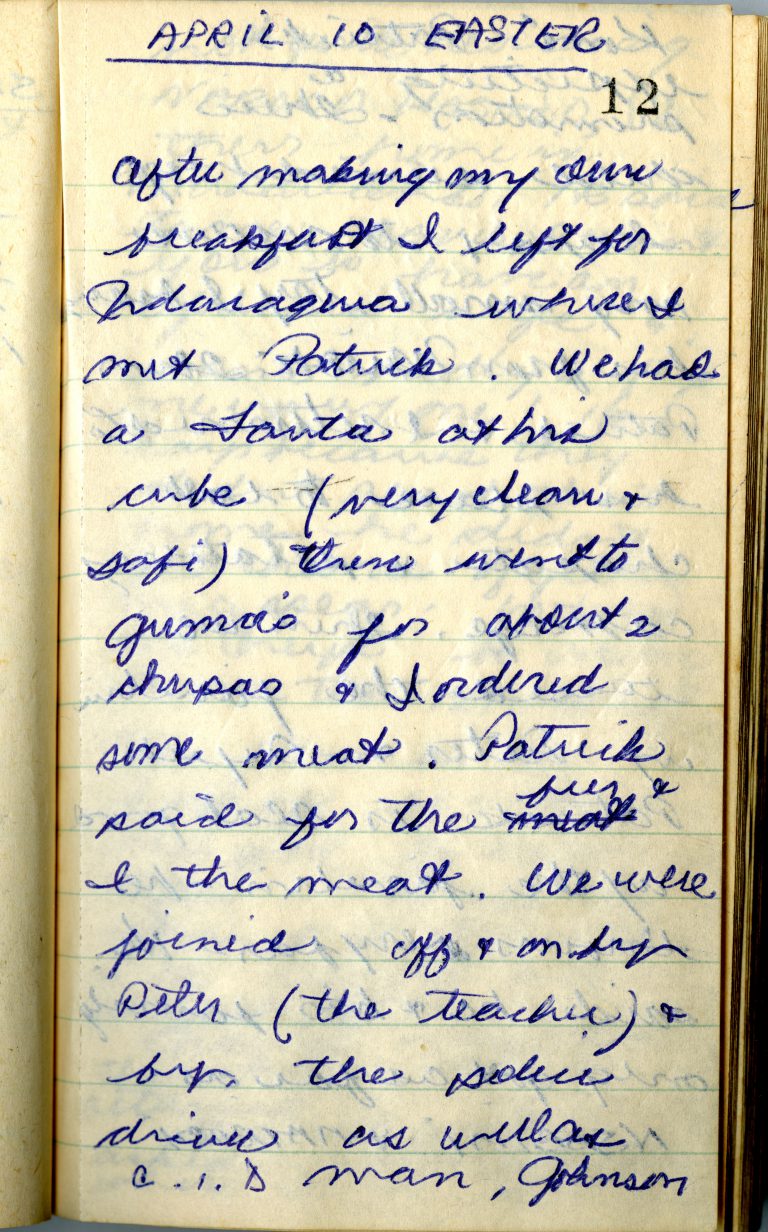 APRIL 10 EASTER
12
after making my own
breakfast I left for
Ndaragwa where I
met Patrick. We had
a Fanta at his
cube (very clean &
safi) then went to
for about 2
chupas & I ordered
some meat. Patrick
said for the beer &
I the meat. We were
joined off & on by
Peter (the teacher) &
by the police
driver as well as
C.I.D man, Johnson